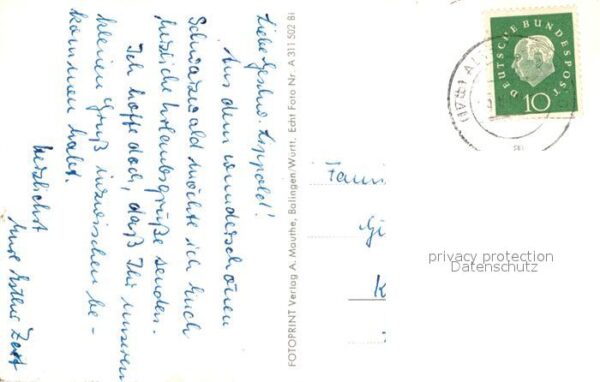 Liebe Geschw. Lippold!
Aus dem wunderschönen
Schwarzwald möchte ich Euch
herzliche Urlaubsgrüße senden.
Ich hoffe doch, daß Ihr unseren
kleinen Gruß inzwischen be-
kommen habt.
Herzlichst
Eure Esther
FOTOPRINT Verlag A. Mauthe, Balingen/Württ. Echt Foto Nr. A 311 502 Bi
DEUTSCHE BUNDESPOST
10
Fami
K
privacy protection
Datenschutz